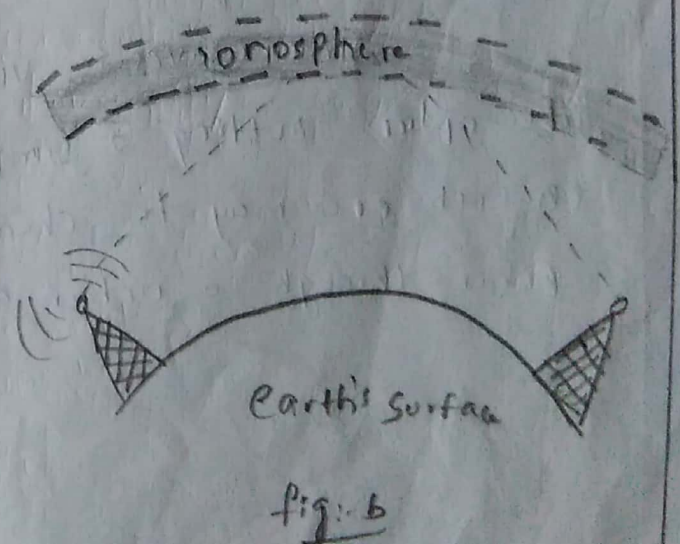 ionosphere
earth's surface
fig:- b